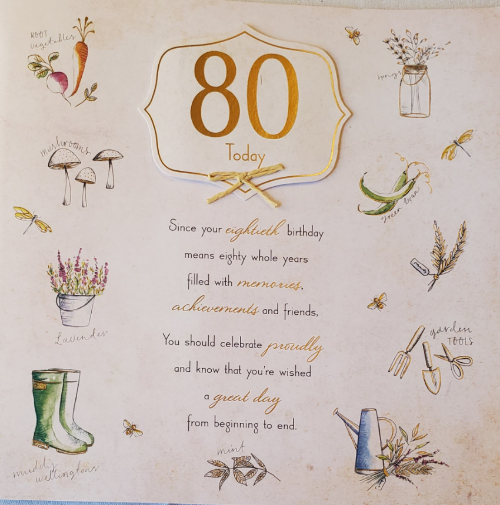 ROOT
vegetables
80
Today
mushrooms
green bean
Since your eightieth birthday
means eighty whole years
filled with memories,
achievements and friends,
You should celebrate proudly
and know that you're wished
a great day
from beginning to end.
lavender
garden
TOOLS
muddy
wellingtons
mint